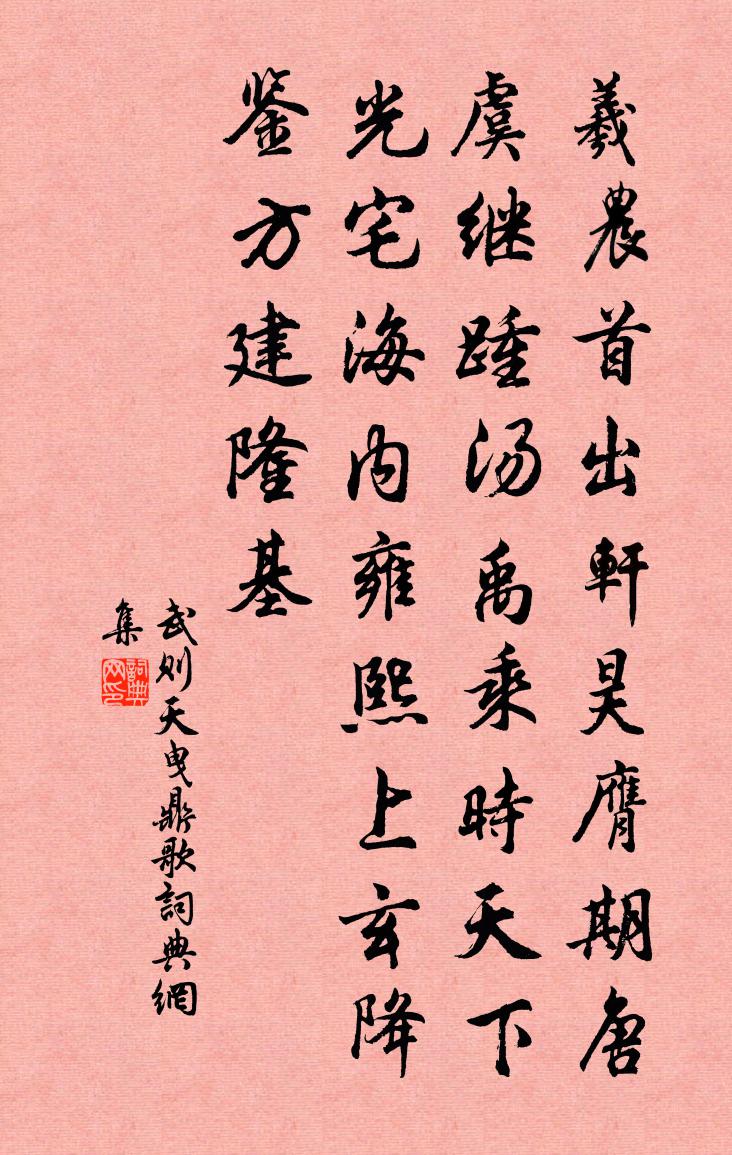 羲農首出軒昊膺期唐
虞继踵汤禹乘時天下
光宅海内雍熙上玄降
鉴方建隆基
武则天曳鼎歌詞典網
集
詞典网印